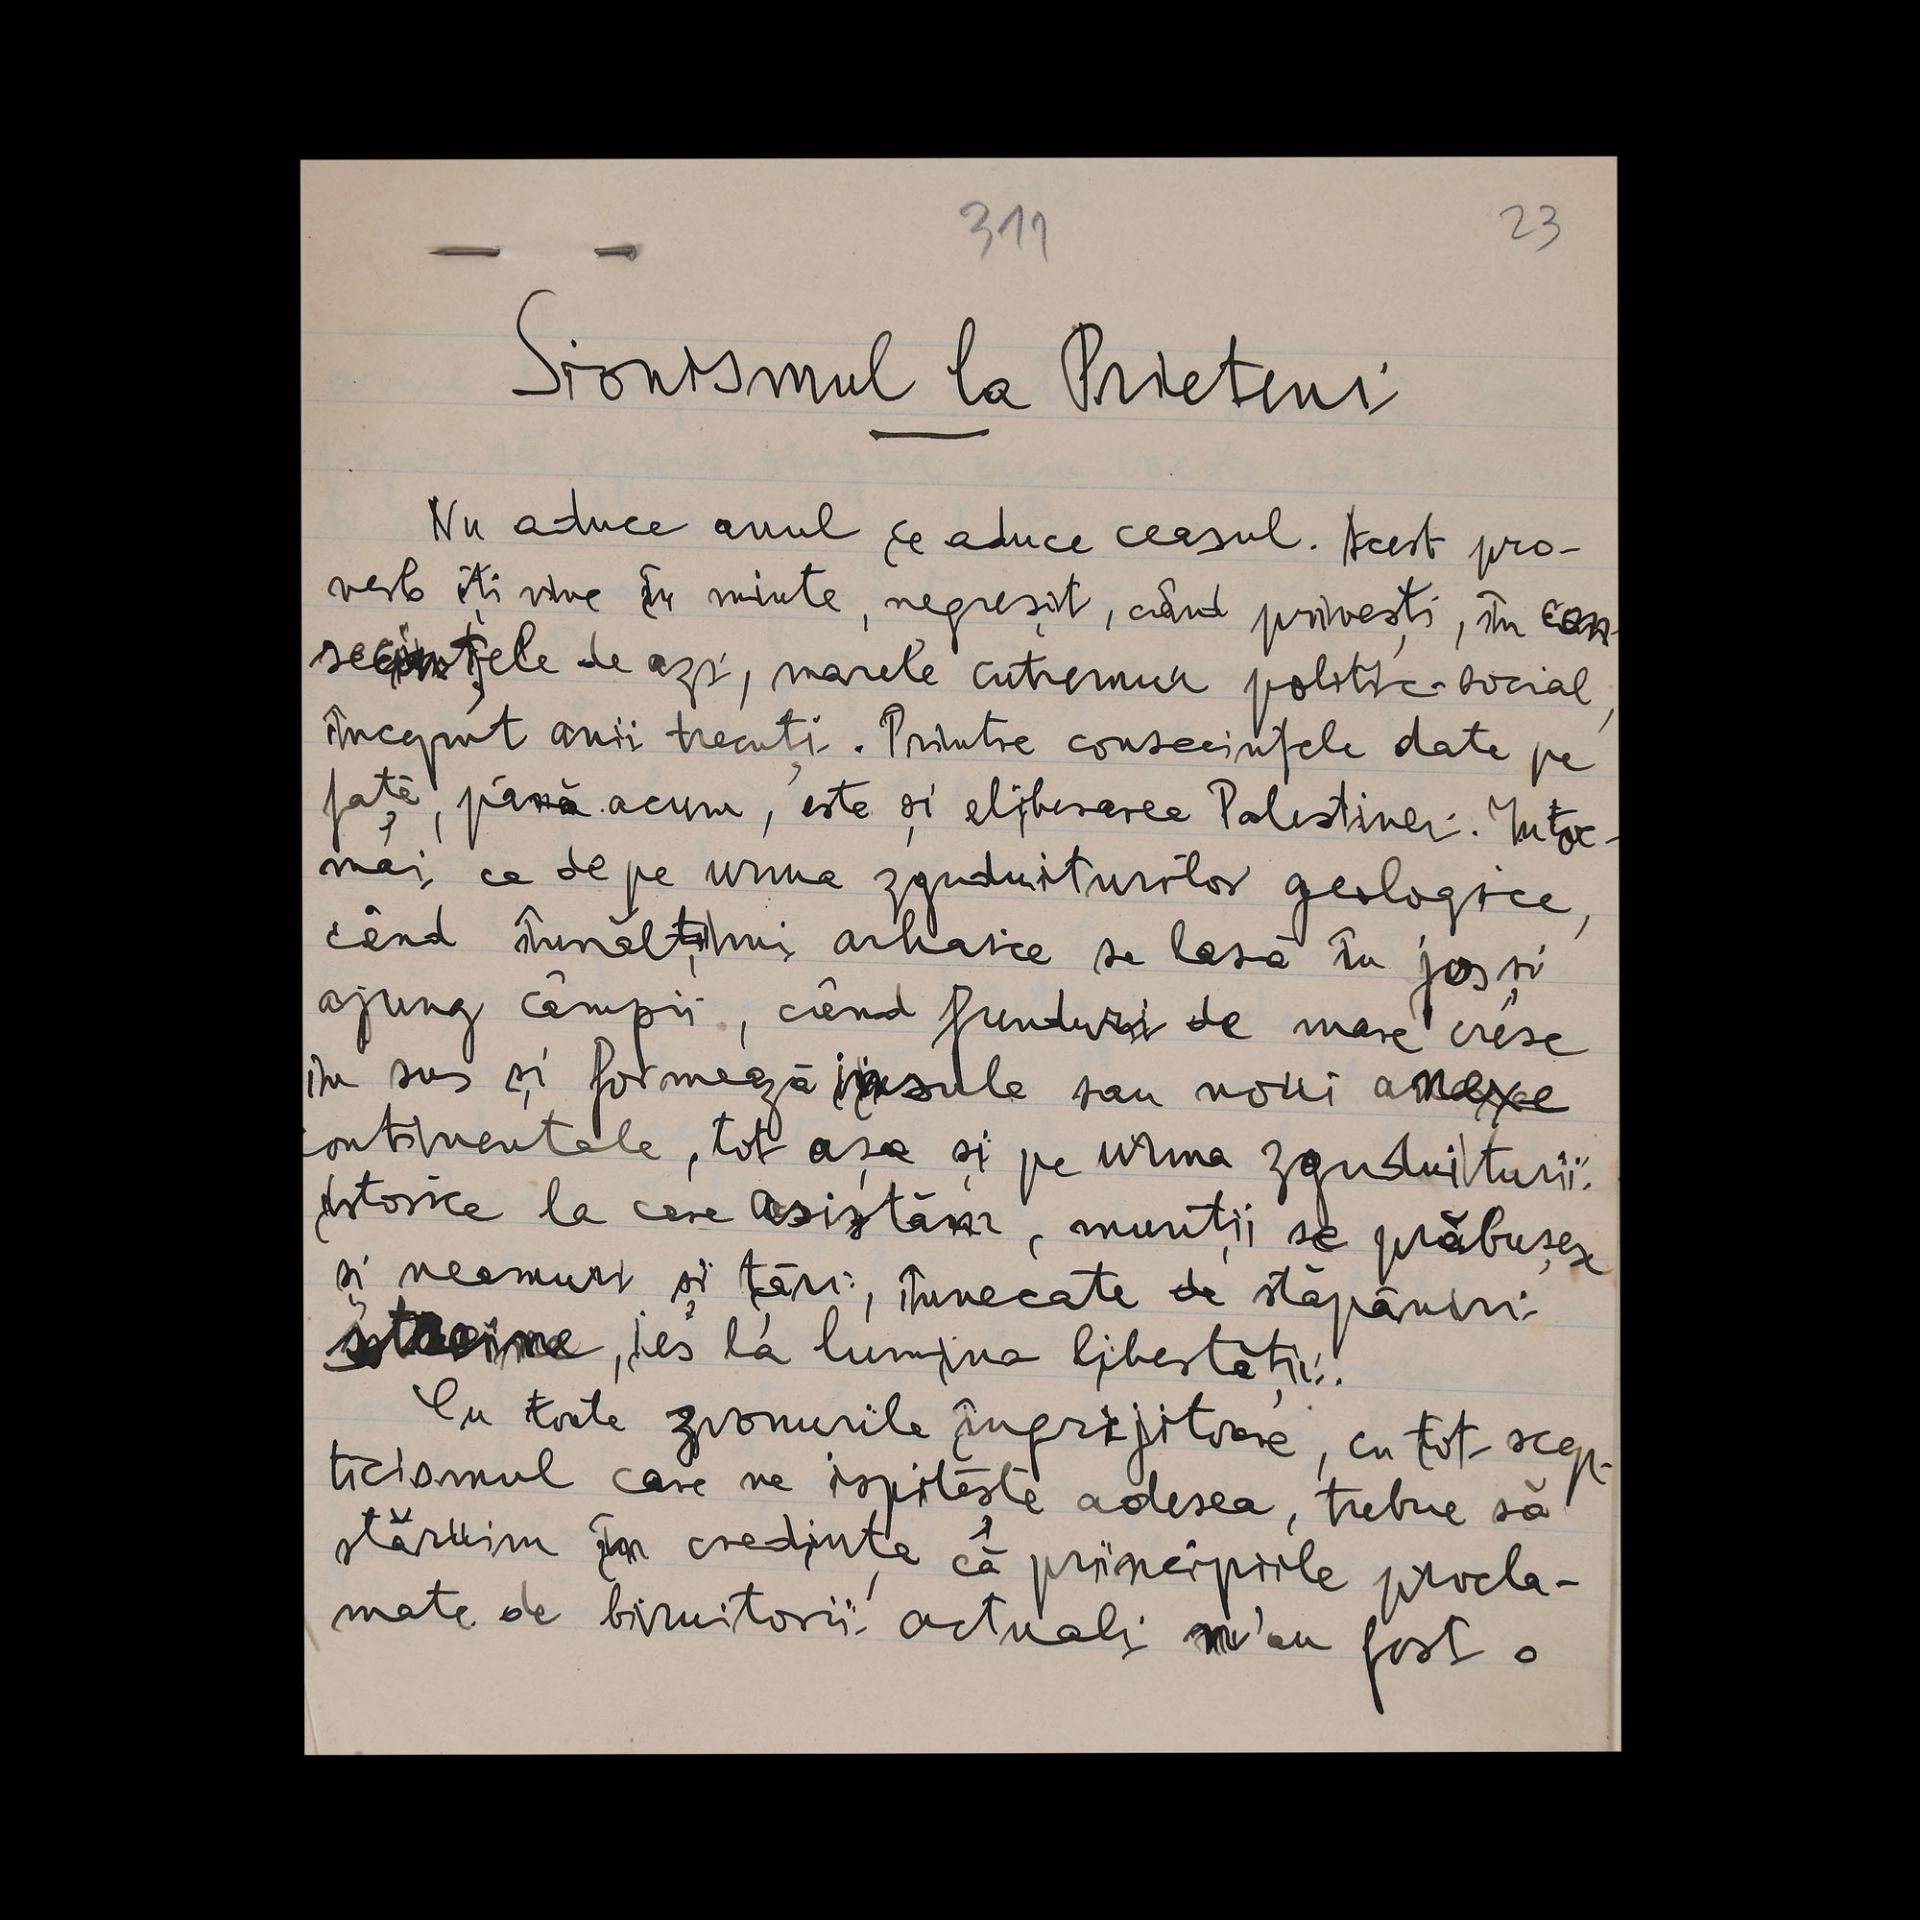 311
23
Sionismul la Prieteni
Nu aduce anul ce aduce ceasul. Acest pro-
verb îți vine în minte, negreșit, când privești, în con-
secințele de azi, marele cutremur politic-social,
început anii trecuți. Printre consecințele date pe
față, până acum, este și eliberarea Palestinei. Întoc-
mai ca de pe urma zguduiturilor geologice,
când înălțimi arhaice se lasă în jos și
ajung câmpii, când funduri de mare cresc
în sus și formează insule sau noui anexe
continentale, tot așa și pe urma zguduiturii
istorice la care asistăm, munții se prăbușesc
și neamuri și țări, înnecate de stăpâniri
străine, ies la lumina libertății.
Cu toate zvonurile îngrijitoare, cu tot scep-
ticismul care ne ispitește adesea, trebue să
stăruim în credința că principiile procla-
mate de biruitorii actuali n'au fost o